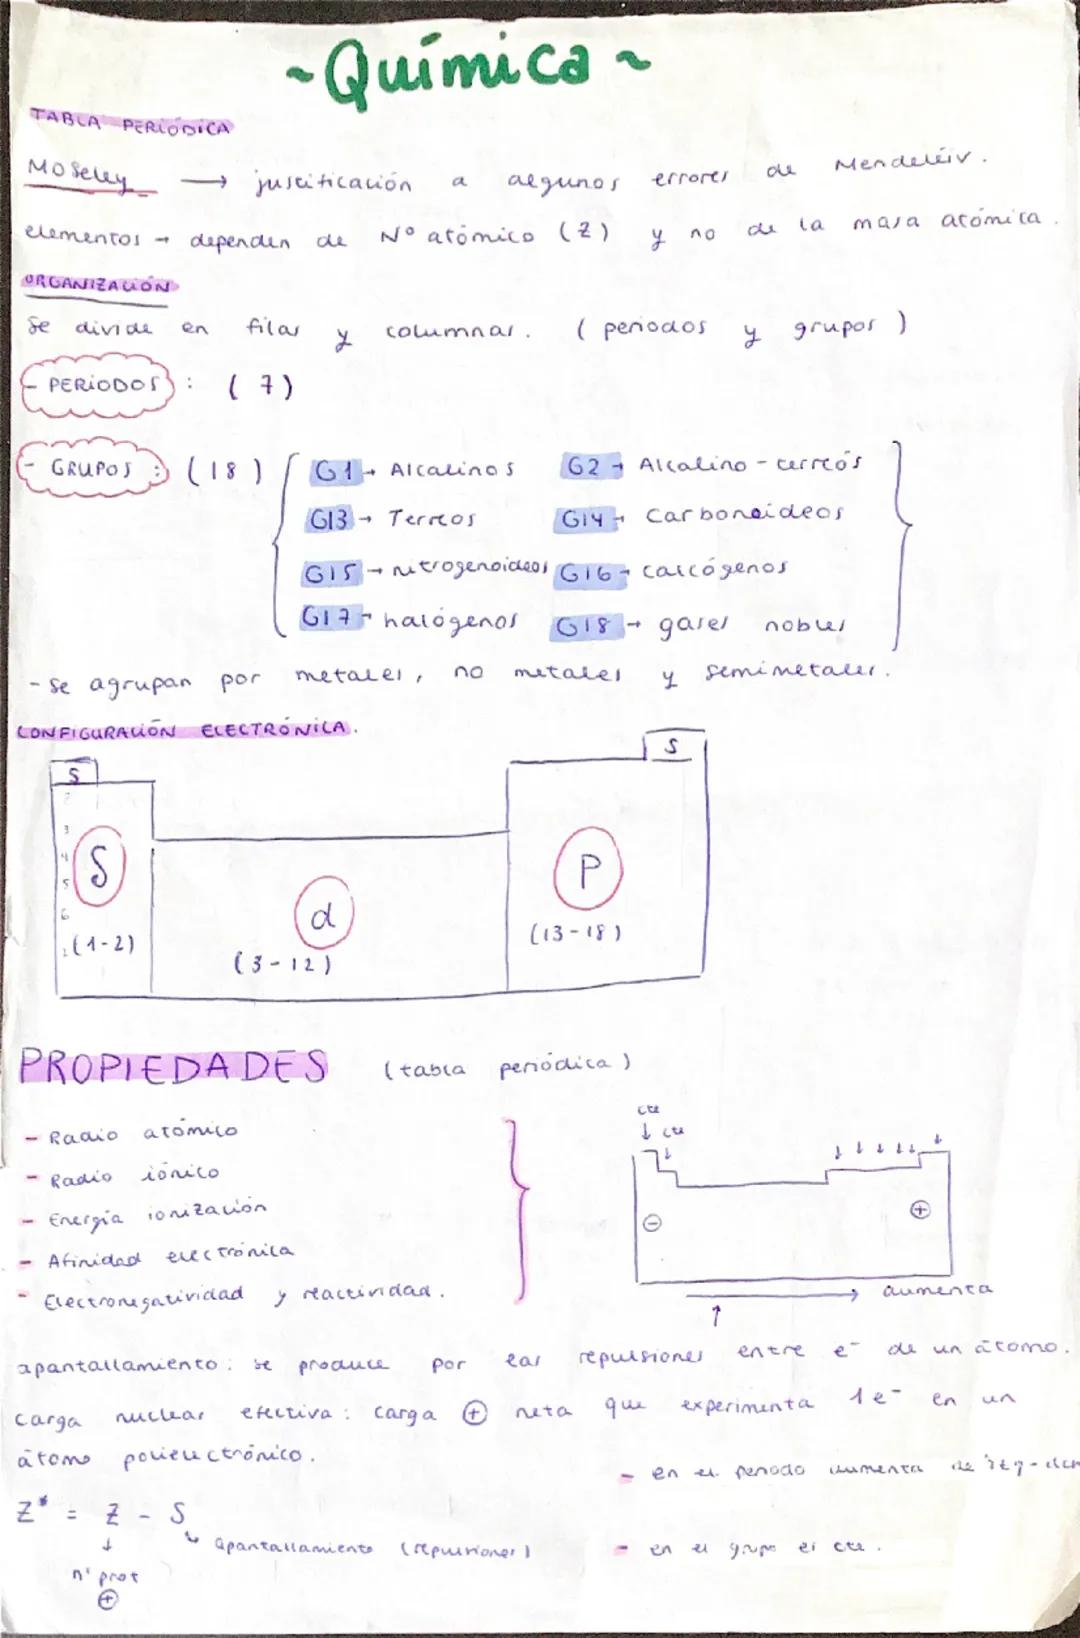 ~Química~
TABLA PERIÓDICA
Moseley → justificación a algunos errores de Mendeléiv.
elementos → dependen de Nº atómico (Z) y no de la masa atómica.
ORGANIZACIÓN
Se divide en filas y columnas. (periodos y grupos)
- PERIODOS: (7)
- GRUPOS: (18) { G1 → Alcalinos G2 → Alcalino-terreós }
G13 → Terreos G14 → Carbonoideos
G15 → nitrogenoideos G16 → calcógenos
G17 → halógenos G18 → gases nobles
- se agrupan por metales, no metales y semimetales.
CONFIGURACIÓN ELECTRÓNICA.
S S
2
3
4
5
6
7
S d P
(1-2) (3-12) (13-18)
PROPIEDADES (tabla periódica)
- Radio atómico
- Radio iónico
- Energía ionización
- Afinidad electrónica
- Electronegatividad y reactividad.
cte
↓ cte
↓ ↓ ↓ ↓ ↓ ↓ ↓
⊖ ⊕
→ aumenta
↑
apantallamiento: se produce por las repulsiones entre e⁻ de un átomo.
carga nuclear efectiva: carga ⊕ neta que experimenta 1e⁻ en un
átomo polielectrónico.
- en el periodo aumenta de izq-dch
Z* = Z - S
↳ apantallamiento (repulsiones)
- en el grupo es cte.
↓
nº prot
⊕